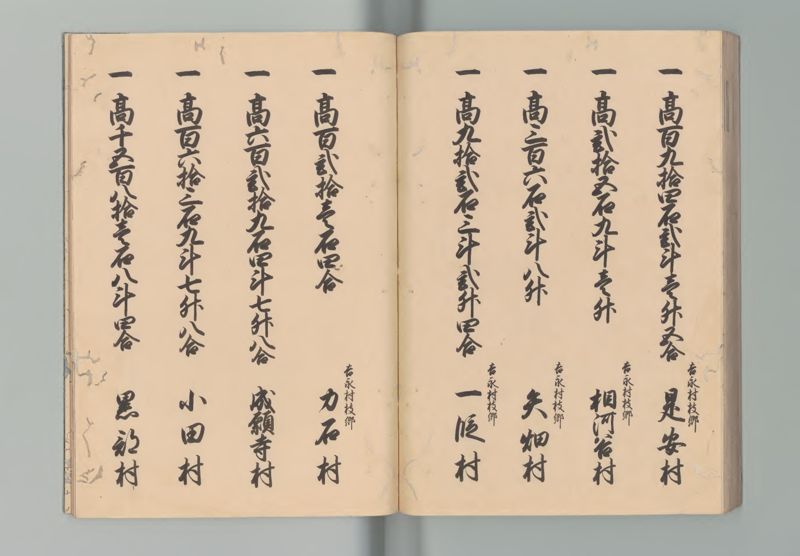 一 高百九拾四石弐斗壱升五合
吉永村枝郷
是安村
一 高弐拾五石九斗壱升
吉永村枝郷
相河谷村
一 高三百六石弐斗八升
吉永村枝郷
矢畑村
一 高九拾弐石三斗弐升四合
吉永村枝郷
一段村
一 高百弐拾壱石四合
吉永村枝郷
力石村
一 高六百弐拾九石四斗七升八合
成願寺村
一 高百六拾三石九斗七升八合
小田村
一 高千五百八拾壱石八斗四合
黒部村